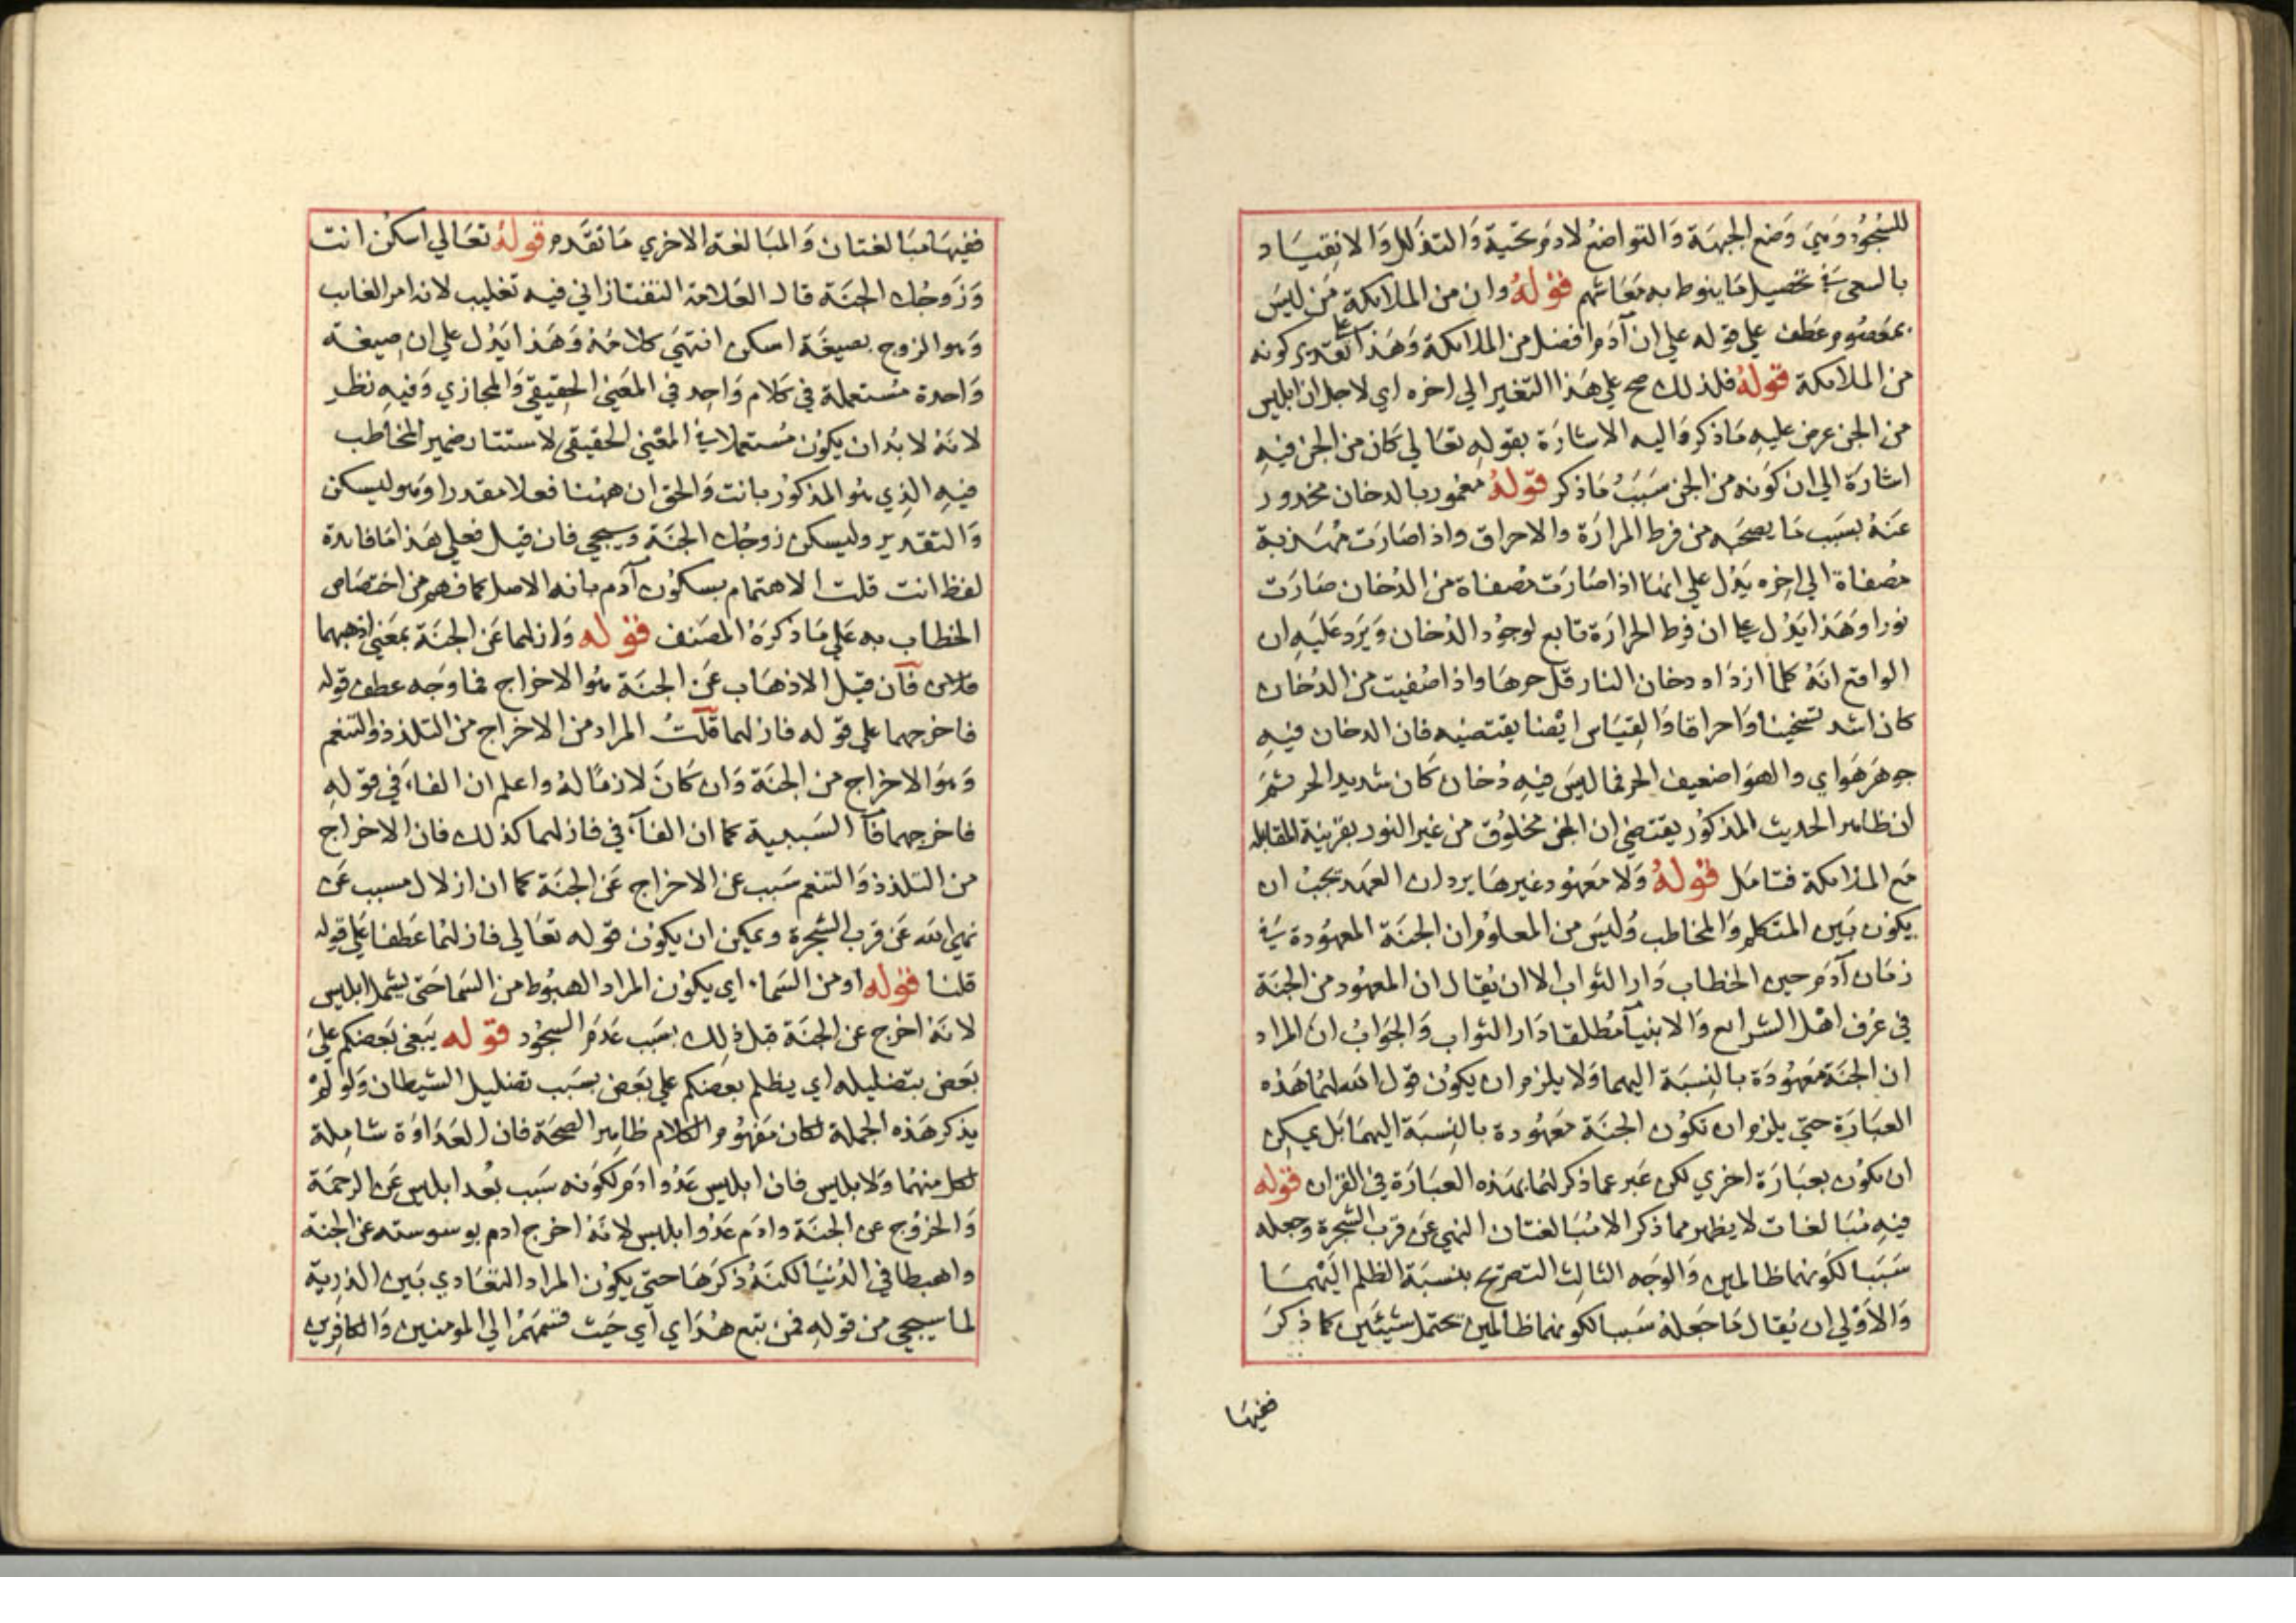 للسجود وهي وضع الجبهة والتواضع لادم تحية والتذلل والانقياد
بالسعي في تحصيل ما ينوط به معاشهم قوله وان من الملائكة من ليس
بمعصوم عطف علي قوله علي ان آدم افضل من الملائكة وهذا علي تقدير كونه
من الملائكة قوله فلذلك صح علي هذا التغير الي اخره اي لاجل ان ابليس
من الجن عرض عليه ما ذكر واليه الاشارة بقوله تعالي كان من الجن فيه
اشارة الي ان كونه من الجن سبب ما ذكر قوله مغمور بالدخان محذور
عنه بسبب ما يصحبه من فرط الحرارة والاحراق واذا صارت مهذبة
مصفاة الي اخره يدل علي انها اذا صارت مصفاة من الدخان صارت
نورا وهذا يدل علي ان فرط الحرارة تابع لوجود الدخان ويرد عليه ان
الواقع انه كلما ازداد دخان النار قل حرها واذا صفيت من الدخان
كان اشد تسخينا واحراقا والقياس ايضا يقتضيه فان الدخان فيه
جوهر هواي والهوا ضعيف الحر فما ليس فيه دخان كان شديد الحر ثم
ان ظاهر الحديث المذكور يقتضي ان الجن مخلوق من غير النور بقرينة المقابله
مع الملائكة فتامل قوله ولا معهود غيرها يرد ان العهد يجب ان
يكون بين المتكلم والمخاطب وليس من المعلوم ان الجنة المعهودة في
زمان آدم حين الخطاب دار الثواب الا ان يقال ان المعهود من الجنة
في عرف اهل الشرايع والانبيآ مطلقا دار الثواب والجواب ان المراد
ان الجنة معهودة بالنسبة اليهما ولا يلزم ان يكون قول الله لهما هذه
العبارة حتي يلزم ان تكون الجنة معهودة بالنسبة اليهما بل يمكن
ان يكون بعبارة اخري لكن عبر عما ذكر لهما بهذه العبارة في القران قوله
فيه مبالغات لا يظهر مما ذكر الا مبالغتان النهي عن قرب الشجرة وجعله
سببا لكونهما ظالمين والوجه الثالث التصريح بنسبة الظلم اليهما
والاولي ان يقال ما جعله سببا لكونهما ظالمين يحتمل شيئين كما ذكر
ففيها
ففيها مبالغتان والمبالغة الاخري ما تقدم قوله تعالي اسكن انت
وزوجك الجنة قال العلامة التفتازاني فيه تغليب لانه امر الغايب
وهو الزوج بصيغة اسكن انتهي كلامه وهذا يدل علي ان صيغة
واحدة مستعملة في كلام واحد في المعني الحقيقي والمجازي وفيه نظر
لانه لا بد ان يكون مستعملا في المعني الحقيقي لاستتار ضمير المخاطب
فيه الذي هو المذكور بانت والحق ان ههنا فعلا مقدرا وهو ليسكن
والتقدير وليسكن زوجك الجنة وسيجي فان قيل فعلي هذا ما فايدة
لفظ انت قلت الاهتمام بسكون آدم بانه الاصل كما فهم من اختصاص
الخطاب به علي ما ذكره المصنف قوله وازلهما عن الجنة بمعني اذهبهما
فآن قيل الاذهاب عن الجنة هو الاخراج فما وجه عطف قوله
فاخرجهما علي قوله فازلهما قلت المراد من الاخراج من التلذذ والتنعم
وهو الاخراج من الجنة وان كان لازما له واعلم ان الفاء في قوله
فاخرجهما فآ السببية كما ان الفآء في فازلهما كذلك فان الاخراج
من التلذذ والتنعم سبب عن الاخراج عن الجنة كما ان ازلال مسبب عن
نهي الله عن قرب الشجرة ويمكن ان يكون قوله تعالي فازلهما عطفا علي قوله
قلنا قوله او من السماء اي يكون المراد الهبوط من السما حتي يشمل ابليس
لانه اخرج عن الجنة قبل ذلك بسبب عدم السجود قوله يبغي بعضكم علي
بعض بتضليله اي يظلم بعضكم علي بعض بسبب تضليل الشيطان ولو لم
يذكر هذه الجملة لكان مفهوم الكلام ظاهر الصحة فان العداوة شاملة
لكل منهما ولابليس فان ابليس عدو ادم لكونه سبب بعد ابليس عن الرحمة
والخروج عن الجنة وادم عدو ابليس لانه اخرج ادم بوسوسته عن الجنة
واهبطا في الدنيا لكنه ذكرها حتي يكون المراد التعادي بين الذرية
لما سيجي من قوله فمن تبع هداي اي حيث قسمهم الي المومنين والكافرين